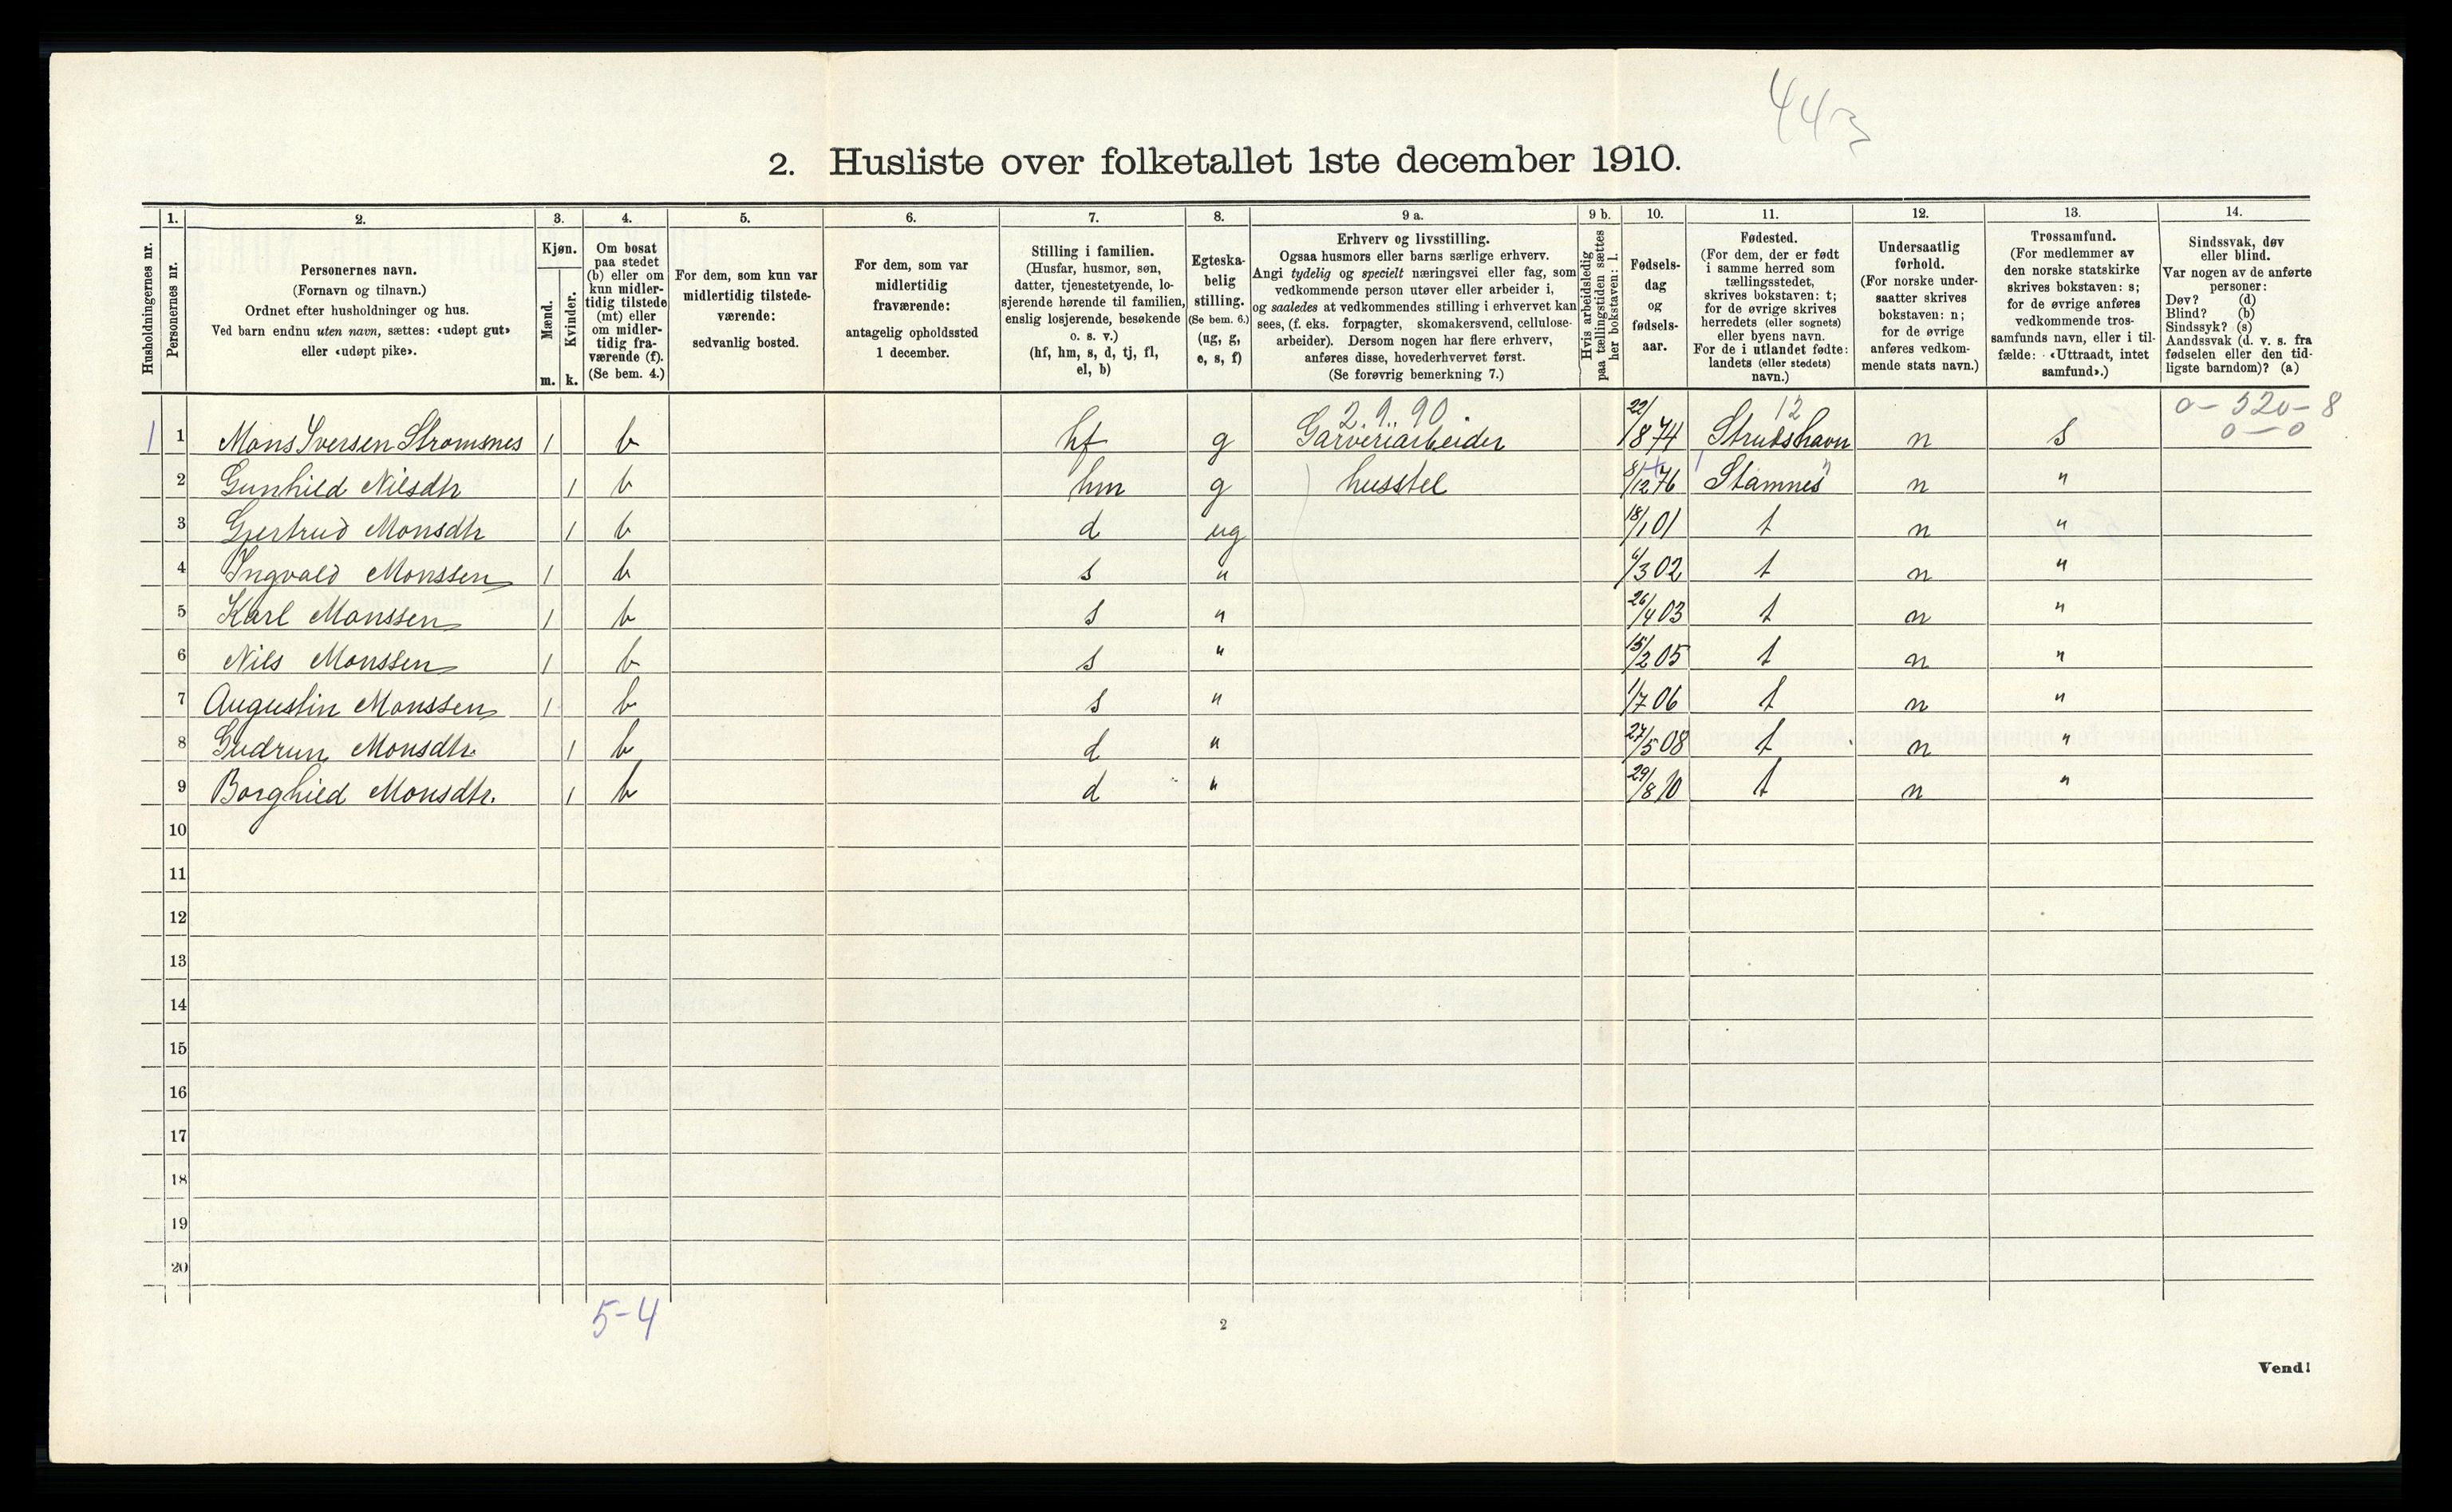 443
2. Husliste over folketallet 1ste december 1910.
Husholdningernes nr.
1.
Personernes nr.
2.
Personernes navn.
(Fornavn og tilnavn.)
Ordnet efter husholdninger og hus.
Ved barn endnu uten navn, sættes: «udøpt gut»
eller «udøpt pike».
3.
Kjøn.
Mænd.
Kvinder.
m. k.
4.
Om bosat
paa stedet
(b) eller om
kun midler-
tidig tilstede
(mt) eller
om midler-
tidig fra-
værende (f).
(Se bem. 4.)
5.
For dem, som kun var
midlertidig tilstede-
værende:
sedvanlig bosted.
6.
For dem, som var
midlertidig
fraværende:
antagelig opholdssted
1 december.
7.
Stilling i familien.
(Husfar, husmor, søn,
datter, tjenestetyende, lo-
sjerende hørende til familien,
enslig losjerende, besøkende
o. s. v.)
(hf, hm, s, d, tj, fl,
el, b)
8.
Egteska-
belig
stilling.
(Se bem. 6.)
(ug, g,
e, s, f)
9 a.
Erhverv og livsstilling.
Ogsaa husmors eller barns særlige erhverv.
Angi tydelig og specielt næringsvei eller fag, som
vedkommende person utøver eller arbeider i,
og saaledes at vedkommendes stilling i erhvervet kan
sees, (f. eks. forpagter, skomakersvend, cellulose-
arbeider). Dersom nogen har flere erhverv,
anføres disse, hovederhvervet først.
(Se forøvrig bemerkning 7.)
9 b.
Hvis arbeidsledig
paa tællingstiden sættes
her bokstaven: l.
10.
Fødsels-
dag
og
fødsels-
aar.
11.
Fødested.
(For dem, der er født
i samme herred som
tællingsstedet,
skrives bokstaven: t;
for de øvrige skrives
herredets (eller sognets)
eller byens navn.
For de i utlandet fødte:
landets (eller stedets)
navn.)
12.
Undersaatlig
forhold.
(For norske under-
saatter skrives
bokstaven: n;
for de øvrige
anføres vedkom-
mende stats navn.)
13.
Trossamfund.
(For medlemmer av
den norske statskirke
skrives bokstaven: s;
for de øvrige anføres
vedkommende tros-
samfunds navn, eller i til-
fælde: «Uttraadt, intet
samfund».)
14.
Sindssvak, døv
eller blind.
Var nogen av de anførte
personer:
Døv? (d)
Blind? (b)
Sindssyk? (s)
Aandssvak (d. v. s. fra
fødselen eller den tid-
ligste barndom)? (a)
2.9.90 12 0-520-8
0-0
1 1 Mons Iversen Stromsnes 1 b hf g Garveriarbeider 22/8 74 Strudshavn n s
2 Gunhild Nilsdtr 1 b hm g husstel 8/12 76 Stamnes n "
3 Gjertrud Monsdtr 1 b d ug 18/1 01 t n "
4 Ingvald Monssen 1 b s " 6/3 02 t n "
5 Karl Monssen 1 b s " 26/4 03 t n "
6 Nils Monssen 1 b s " 15/2 05 t n "
7 Augustin Monssen 1 b s " 1/7 06 t n "
8 Gudrun Monsdtr. 1 b d " 27/5 08 t n "
9 Borghild Monsdtr. 1 b d " 29/8 10 t n "
10
11
12
13
14
15
16
17
18
19
20
5-4
2
Vend!